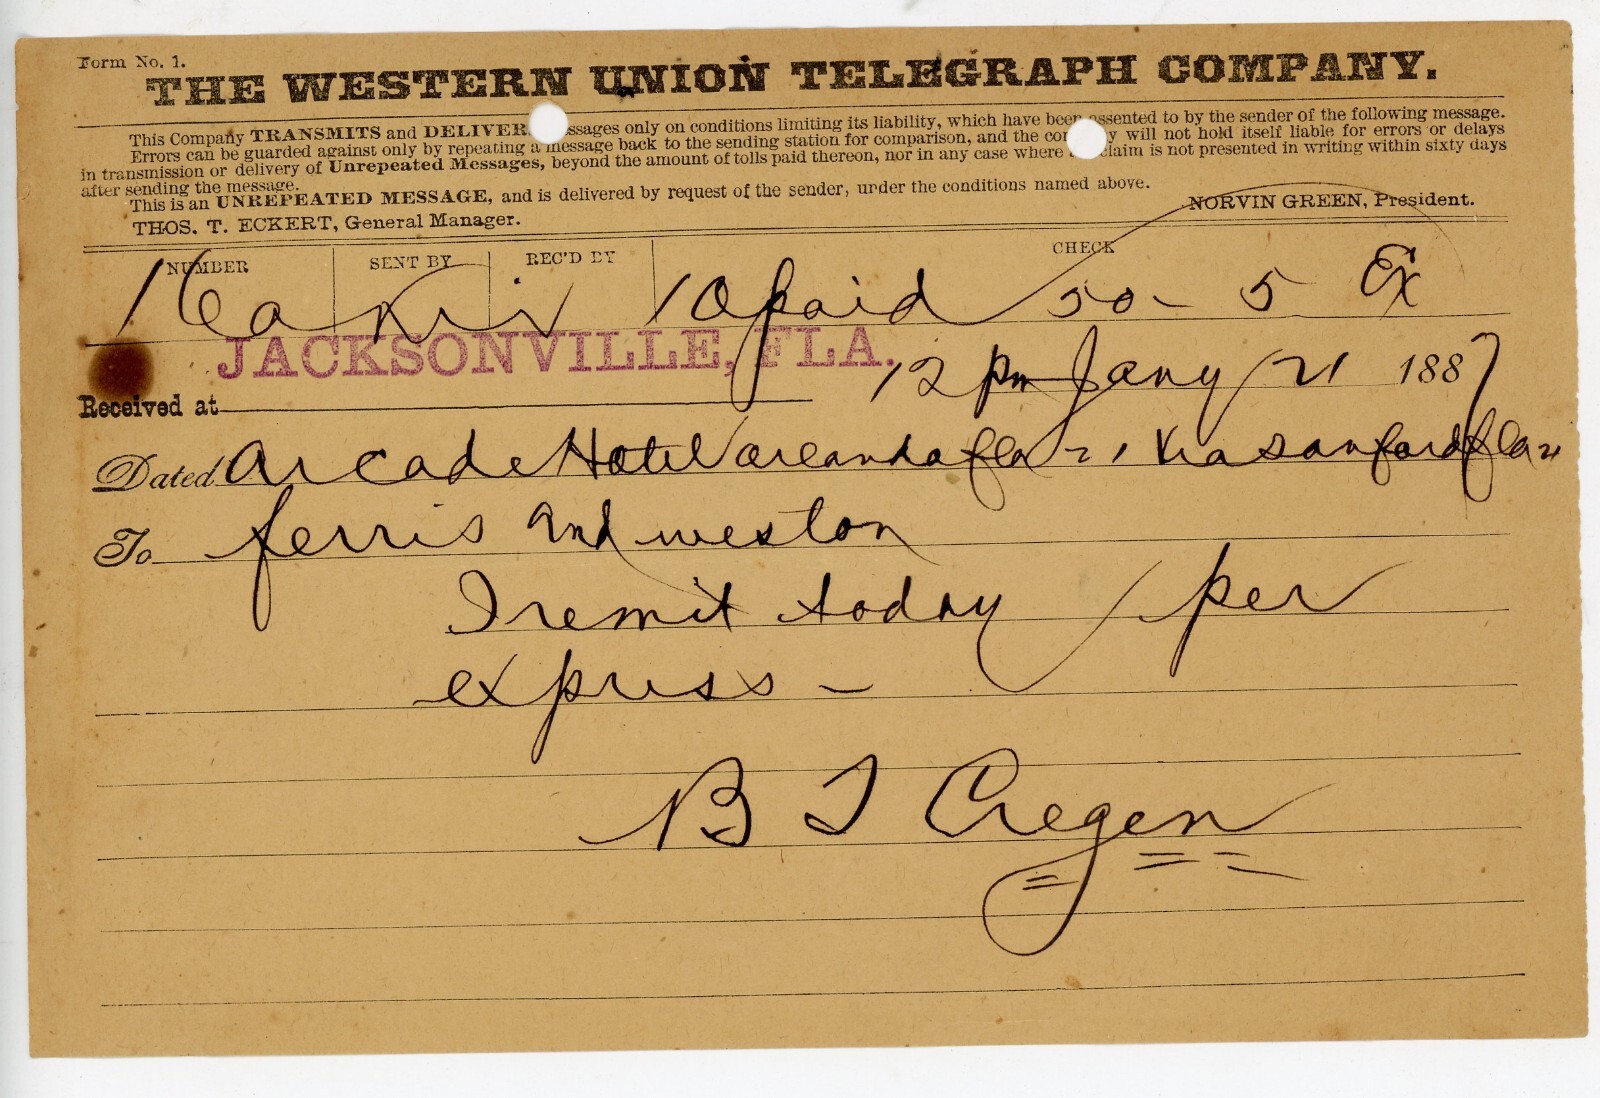 Form No. 1.
THE WESTERN UNION TELEGRAPH COMPANY.
This Company TRANSMITS and DELIVER ssages only on conditions limiting its liability, which have been assented to by the sender of the following message.
Errors can be guarded against only by repeating a message back to the sending station for comparison, and the co y will not hold itself liable for errors or delays
in transmission or delivery of Unrepeated Messages, beyond the amount of tolls paid thereon, nor in any case where claim is not presented in writing within sixty days
after sending the message.
This is an UNREPEATED MESSAGE, and is delivered by request of the sender, under the conditions named above.
THOS. T. ECKERT, General Manager. NORVIN GREEN, President.
NUMBER SENT BY REC'D BY CHECK
16 10 paid 50 - 5 Ex
JACKSONVILLE, FLA.
Received at 12 pm Jany 21 1887
Dated Arcade Hotel orlando fla 21 Via sanford fla 21
To ferris and weston
I remit today per
express -
B T Cregen